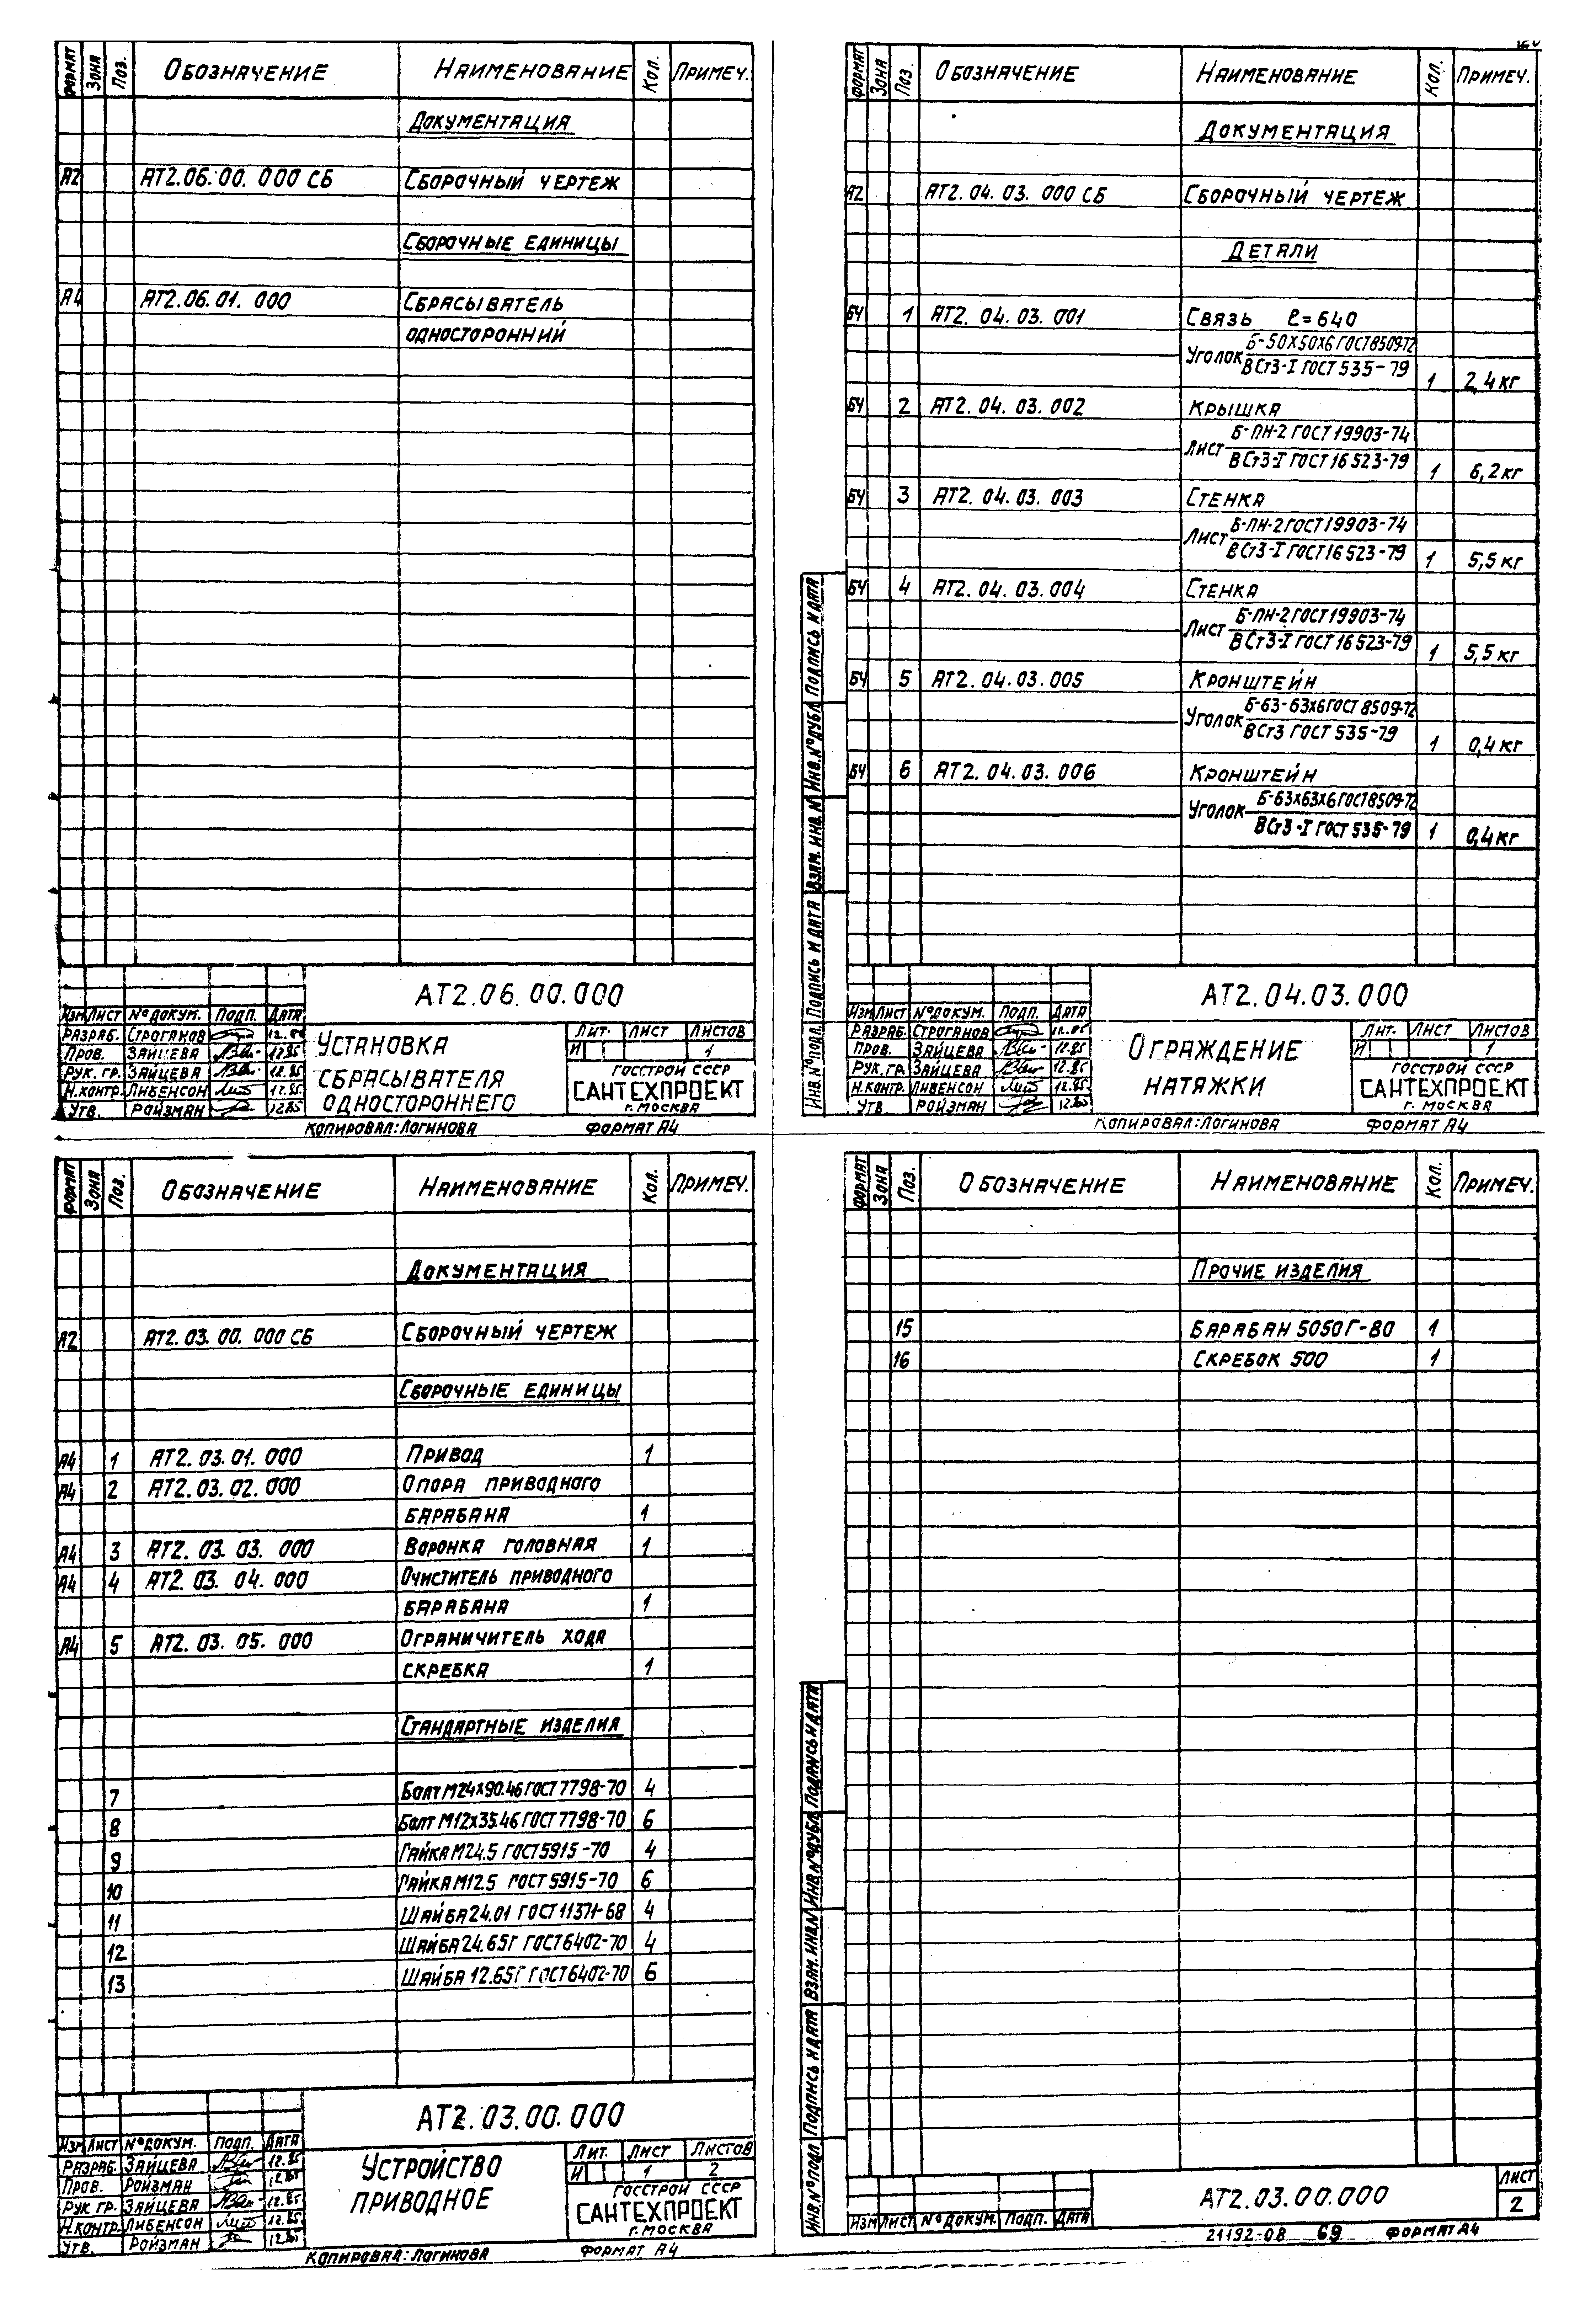 Формат Зона Поз. Обозначение Наименование Кол. Примеч.
Документация
А2 АТ2.06.00.000 СБ Сборочный чертеж
Сборочные единицы
А4 АТ2.06.01.000 Сбрасыватель
односторонний
АТ2.06.00.000
Изм Лист № докум. Подп. Дата
Разраб. Строганов 12.85
Пров. Зайцева 12.85
Рук. гр. Зайцева 12.85
Н.контр. Либенсон 12.85
Утв. Ройзман 12.85
Установка
сбрасывателя
одностороннего
Лит. Лист Листов
И 1
Госстрой СССР
САНТЕХПРОЕКТ
г. Москва
Копировал: Логинова Формат А4
Формат Зона Поз. Обозначение Наименование Кол. Примеч.
Документация
А2 АТ2.04.03.000 СБ Сборочный чертеж
Детали
БЧ 1 АТ2.04.03.001 Связь ℓ=640
Уголок Б-50х50х6 ГОСТ 8509-72
ВСт3-I ГОСТ 535-79 1 2,4 кг
БЧ 2 АТ2.04.03.002 Крышка
Лист Б-ПН-2 ГОСТ 19903-74
ВСт3-I ГОСТ 16523-79 1 6,2 кг
БЧ 3 АТ2.04.03.003 Стенка
Лист Б-ПН-2 ГОСТ 19903-74
ВСт3-I ГОСТ 16523-79 1 5,5 кг
БЧ 4 АТ2.04.03.004 Стенка
Лист Б-ПН-2 ГОСТ 19903-74
ВСт3-I ГОСТ 16523-79 1 5,5 кг
БЧ 5 АТ2.04.03.005 Кронштейн
Уголок Б-63-63х6 ГОСТ 8509-72
ВСт3 ГОСТ 535-79 1 0,4 кг
БЧ 6 АТ2.04.03.006 Кронштейн
Уголок Б-63х63х6 ГОСТ 8509-72
ВСт3-I ГОСТ 535-79 1 0,4 кг
Инв. № подл. Подпись и дата Взам. инв. № Инв. № дубл. Подпись и дата
АТ2.04.03.000
Изм Лист № докум. Подп. Дата
Разраб. Строганов 12.85
Пров. Зайцева 12.85
Рук. гр. Зайцева 12.85
Н.контр. Либенсон 12.85
Утв. Ройзман 12.85
Ограждение
натяжки
Лит. Лист Листов
И 1
Госстрой СССР
САНТЕХПРОЕКТ
г. Москва
Копировал: Логинова Формат А4
Формат Зона Поз. Обозначение Наименование Кол. Примеч.
Документация
А2 АТ2.03.00.000 СБ Сборочный чертеж
Сборочные единицы
А4 1 АТ2.03.01.000 Привод 1
А4 2 АТ2.03.02.000 Опора приводного
барабана 1
А4 3 АТ2.03.03.000 Воронка головная 1
А4 4 АТ2.03.04.000 Очиститель приводного
барабана 1
А4 5 АТ2.03.05.000 Ограничитель хода
скребка 1
Стандартные изделия
7 Болт М24х90.46 ГОСТ 7798-70 4
8 Болт М12х35.46 ГОСТ 7798-70 6
9 Гайка М24.5 ГОСТ 5915-70 4
10 Гайка М12.5 ГОСТ 5915-70 6
11 Шайба 24.01 ГОСТ 11371-68 4
12 Шайба 24.65Г ГОСТ 6402-70 4
13 Шайба 12.65Г ГОСТ 6402-70 6
АТ2.03.00.000
Изм Лист № докум. Подп. Дата
Разраб. Зайцева 12.85
Пров. Ройзман 12.85
Рук гр. Зайцева 12.85
Н.контр. Либенсон 12.85
Утв. Ройзман 12.85
Устройство
приводное
Лит. Лист Листов
И 1 2
Госстрой СССР
САНТЕХПРОЕКТ
г. Москва
Копировал: Логинова Формат А4
Формат Зона Поз. Обозначение Наименование Кол. Примеч.
Прочие изделия
15 Барабан 5050Г-80 1
16 Скребок 500 1
Инв. № подл Подпись и дата Взам. инв. № Инв. № дубл. Подпись и дата
Изм Лист № докум. Подп. Дата
АТ2.03.00.000
Лист
2
21192-08 69 Формат А4